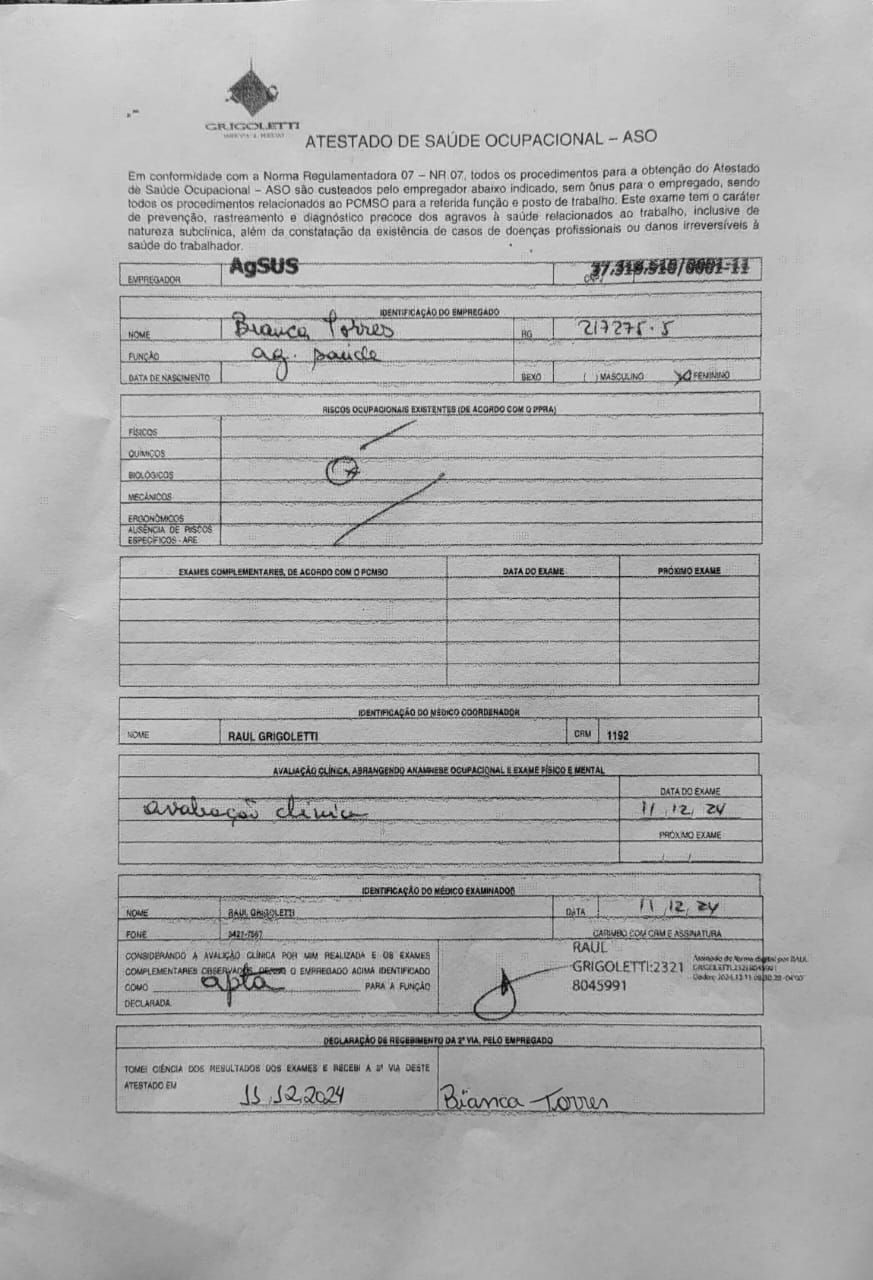 GRIGOLETTI
ATESTADO DE SAÚDE OCUPACIONAL – ASO
Em conformidade com a Norma Regulamentadora 07 – NR 07, todos os procedimentos para a obtenção do Atestado
de Saúde Ocupacional – ASO são custeados pelo empregador abaixo indicado, sem ônus para o empregado, sendo
todos os procedimentos relacionados ao PCMSO para a referida função e posto de trabalho. Este exame tem o caráter
de prevenção, rastreamento e diagnóstico precoce dos agravos à saúde relacionados ao trabalho, inclusive de
natureza subclínica, além da constatação da existência de casos de doenças profissionais ou danos irreversíveis à
saúde do trabalhador.
EMPREGADOR AgSUS 37.318.510/0001-11
IDENTIFICAÇÃO DO EMPREGADO
NOME Bianca Torres RG 217275.5
FUNÇÃO ag. saúde
DATA DE NASCIMENTO SEXO ( ) MASCULINO (X) FEMININO
RISCOS OCUPACIONAIS EXISTENTES (DE ACORDO COM O PPRA)
FÍSICOS
QUÍMICOS
BIOLÓGICOS
MECÂNICOS
ERGONÔMICOS
AUSÊNCIA DE RISCOS
ESPECÍFICOS - ARE
EXAMES COMPLEMENTARES, DE ACORDO COM O PCMSO DATA DO EXAME PRÓXIMO EXAME
IDENTIFICAÇÃO DO MÉDICO COORDENADOR
NOME RAUL GRIGOLETTI CRM 1192
AVALIAÇÃO CLÍNICA, ABRANGENDO ANAMNESE OCUPACIONAL E EXAME FÍSICO E MENTAL
DATA DO EXAME
avaliação clínica 11,12,24
PRÓXIMO EXAME
/ /
IDENTIFICAÇÃO DO MÉDICO EXAMINADOR
NOME RAUL GRIGOLETTI DATA 11,12,24
FONE CARIMBO COM CRM E ASSINATURA
CONSIDERANDO A AVALIÇÃO CLÍNICA POR MIM REALIZADA E OS EXAMES
COMPLEMENTARES OBSERVAÇÃO O EMPREGADO ACIMA IDENTIFICADO
COMO apta PARA A FUNÇÃO
DECLARADA.
RAUL
GRIGOLETTI:2321
8045991
Assinado de forma digital por RAUL
GRIGOLETTI:23218045991
DECLARAÇÃO DE RECEBIMENTO DA 2ª VIA, PELO EMPREGADO
TOMEI CIÊNCIA DOS RESULTADOS DOS EXAMES E RECEBI A 2ª VIA DESTE
ATESTADO EM 11,12,2024 Bianca Torres